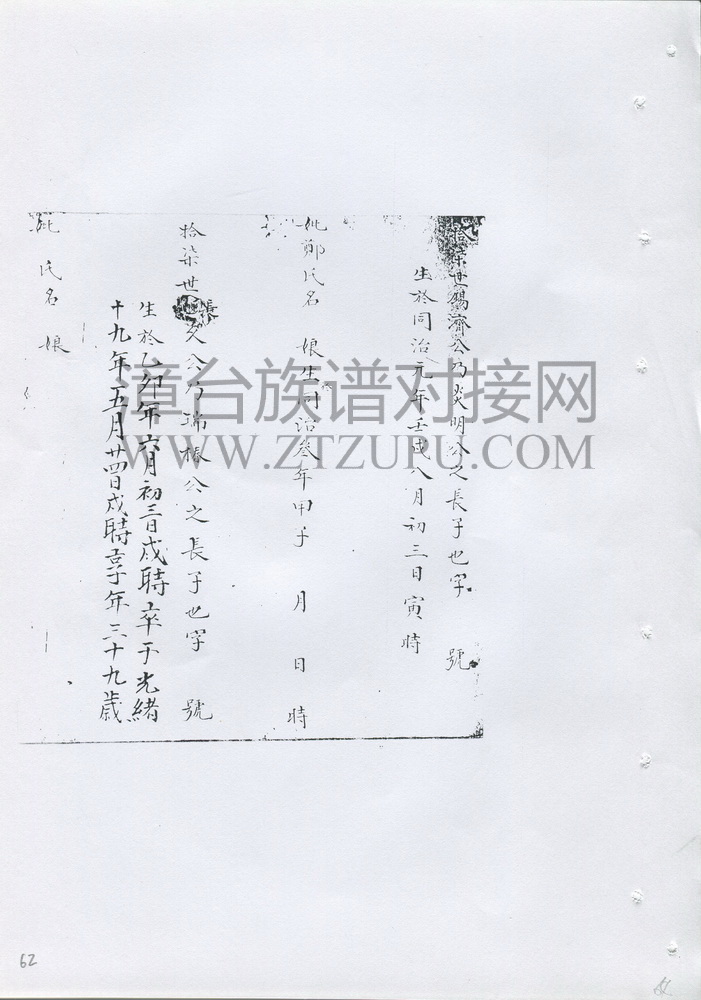 拾柒世錫濟公乃炎明公之長子也字 號
生於同治元年壬戌八月初三日寅時
妣鄭氏名 娘生同治叁年甲子 月 日 時
拾柒世 公乃瑞椿公之長子也字 號
生於乙卯年六月初三日戌時卒于光緒
十九年五月廿四日戌時享年三十九歲
妣 氏名 娘
漳台族谱对接网
WWW.ZTZUPU.COM
62
62